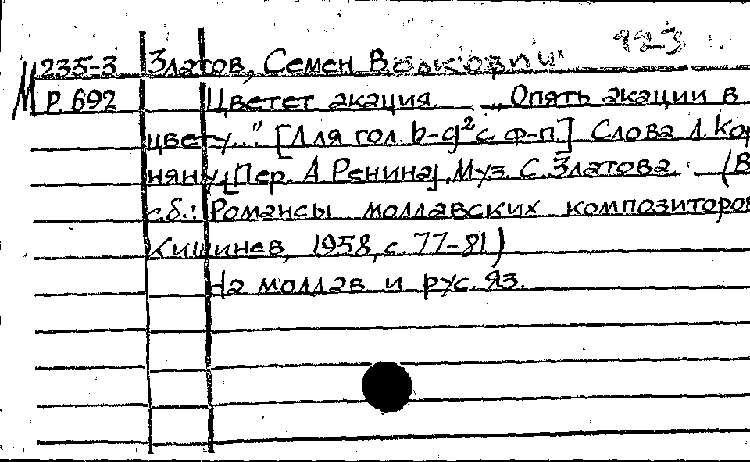 235-3 Златов, Семен Волкович 923
М Р 692 Цветет акация. „Опять акации в
цвету..." [Для гол. b-g² с ф-п.] Слова Л. Кор
няну, [Пер. А. Ренина], Муз. С. Златова. (В
сб.: Романсы молдавских композиторов
Кишинев, 1958, с. 77-81)
На молдав и рус. яз.